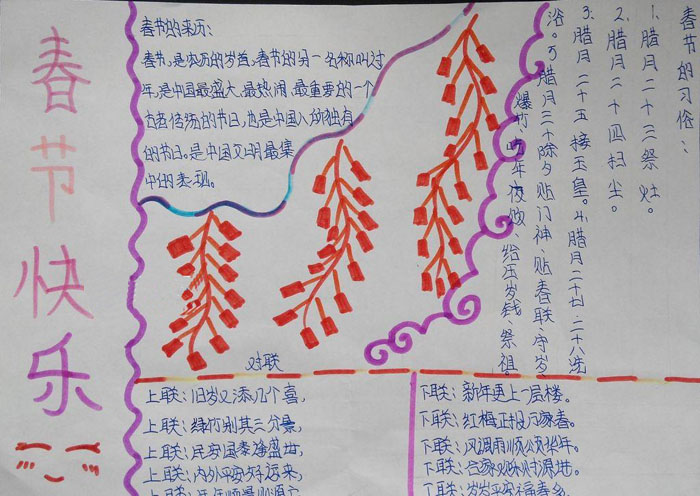 春节快乐
春节的来历:
春节,是农历的岁首,春节的另一名称叫过
年,是中国最盛大、最热闹、最重要的一个
古老传统的节日,也是中国人所独有
的节日。是中国文明最集
中的表现。
春节的习俗:
1、腊月二十三祭灶。
2、腊月二十四扫尘。
3、腊月二十五接玉皇。4、腊月二十七、二十八洗
浴。5、腊月三十除夕贴门神、贴春联、守岁、
爆竹、吃年夜饭、给压岁钱、祭祖。
对联
上联:旧岁又添几个喜,
上联:绿竹别其三分景,
上联:民安国泰逢盛世,
上联:内外平安好运来,
上联:
下联:新年更上一层楼。
下联:红梅正报万家春。
下联:风调雨顺颂华年。
下联:合家欢乐财源进。
下联:岁岁平安福春多